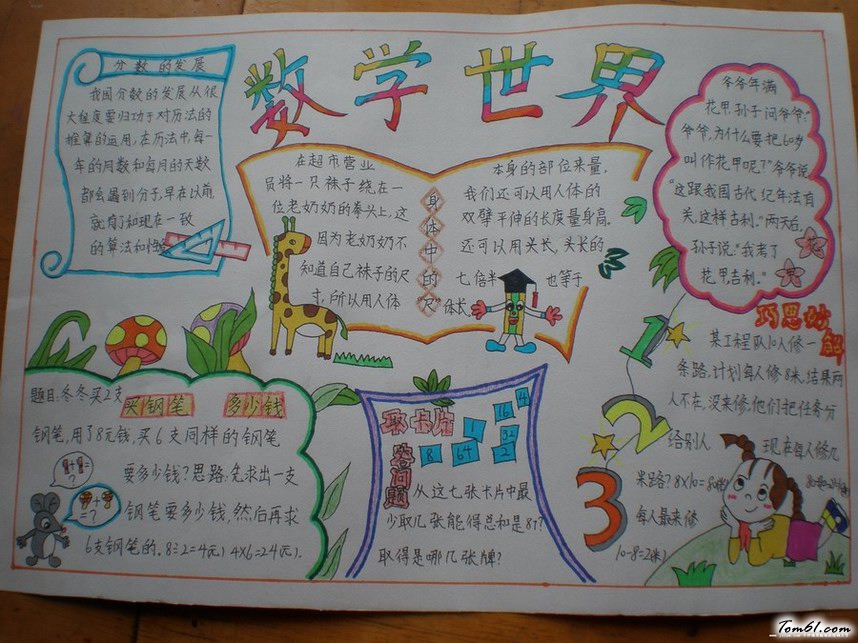 数学世界
分数的发展
我国分数的发展从很
大程度要归功于对历法的
推算的运用,在历法中,每一
年的周数和每月的天数
都会遇到分子,早在以前
就有了和现在一致
的算法和
在超市营业
员将一只袜子绕在一
位老奶奶的拳头上,这
因为老奶奶不
知道自己袜子的尺
寸,所以用人体
身体中的“尺”
本身的部位来量,
我们还可以用人体的
双臂平伸的长度量身高。
还可以用头长,头长的
七倍半 也等于
身长
爷爷年满
花甲,孙子问爷爷:“
爷爷,为什么要把60岁
叫作花甲呢?”爷爷说
“这跟我国古代纪年法有
关,这样吉利。”两天后,
孙子说:“我考了
花甲,吉利。”
花甲
题目:冬冬买2支
买钢笔 多少钱
钢笔,用了8元钱,买6支同样的钢笔
要多少钱?思路:先求出一支
钢笔要多少钱,然后再求
6支钢笔的。8÷2=4(元) 4×6=24(元).
取卡片
答问题
1 16 4
8 64 32 2
从这七张卡片中最
少取几张能得总和是87?
取得是哪几张牌?
巧思妙解
1
2
3
某工程队10人修一
条路,计划每人修8米,结果两
人不在,没来修,他们把任务分
给别人 现在每人修几
米路?8×10=80(米)
每人最来修
10-8=2(米)
Tom61.com